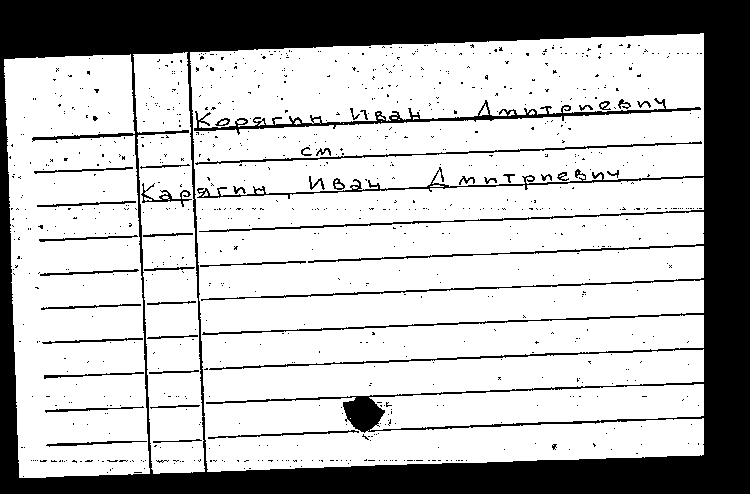 Корягин, Иван Дмитриевич
см:
Карягин, Иван Дмитриевич